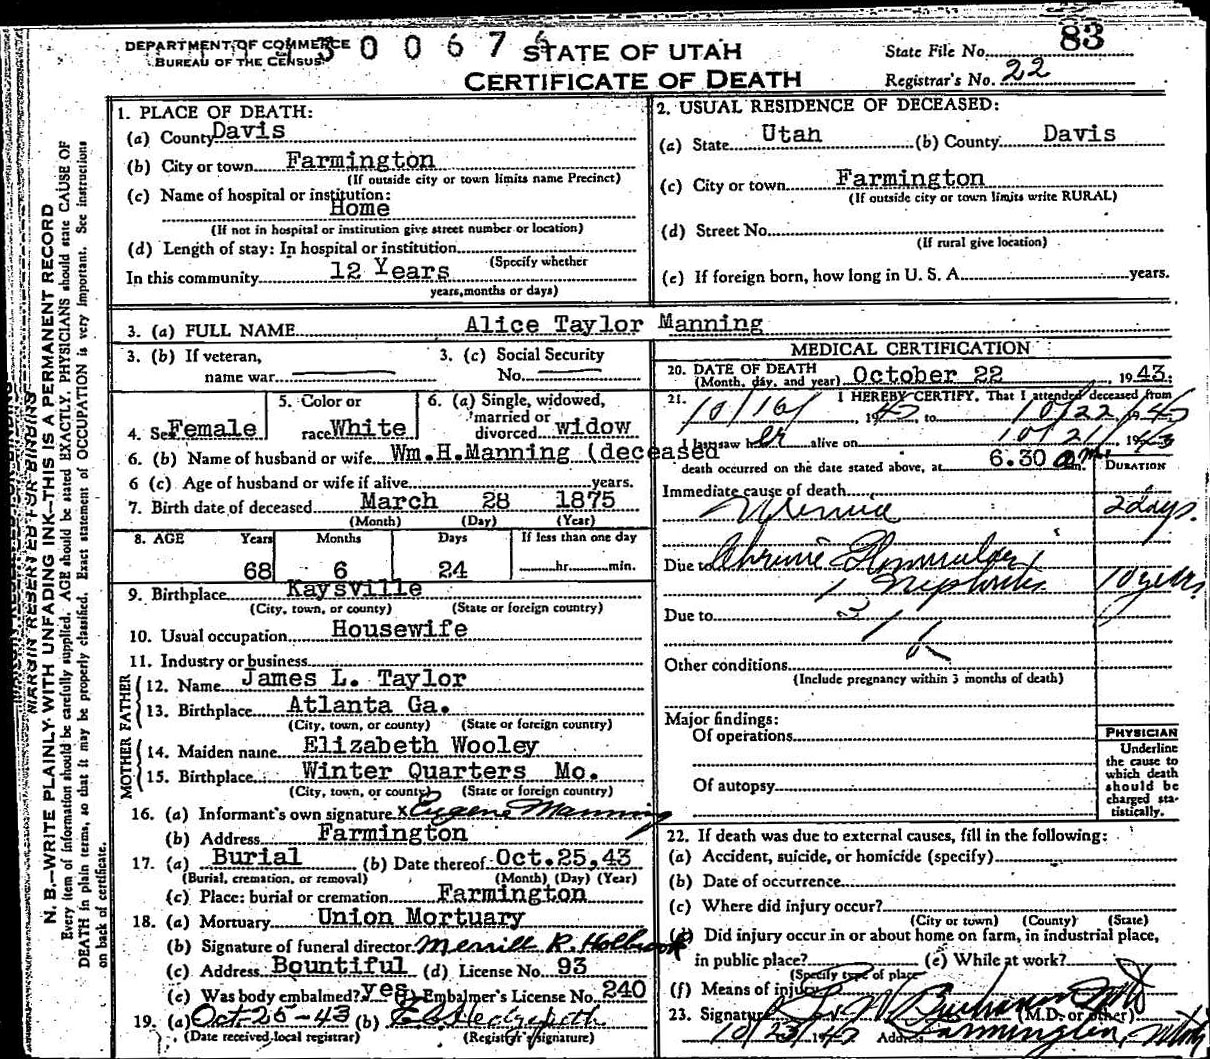 DEPARTMENT OF COMMERCE
BUREAU OF THE CENSUS
300674
STATE OF UTAH
CERTIFICATE OF DEATH
State File No. 83
Registrar's No. 22
MARGIN RESERVED FOR BINDING
N. B.—WRITE PLAINLY WITH UNFADING INK—THIS IS A PERMANENT RECORD
Every item of information should be carefully supplied. AGE should be stated EXACTLY. PHYSICIANS should state CAUSE OF
DEATH in plain terms, so that it may be properly classified. Exact statement of OCCUPATION is very important. See instructions
on back of certificate.
1. PLACE OF DEATH:
(a) County Davis
(b) City or town Farmington
(If outside city or town limits name Precinct)
(c) Name of hospital or institution:
Home
(If not in hospital or institution give street number or location)
(d) Length of stay: In hospital or institution
(Specify whether
In this community 12 Years
years, months or days)
2. USUAL RESIDENCE OF DECEASED:
(a) State Utah (b) County Davis
(c) City or town Farmington
(If outside city or town limits write RURAL)
(d) Street No.
(If rural give location)
(e) If foreign born, how long in U. S. A. years.
3. (a) FULL NAME Alice Taylor Manning
3. (b) If veteran,
name war
3. (c) Social Security
No.
4. Sex Female
5. Color or
race White
6. (a) Single, widowed,
married or
divorced widow
6. (b) Name of husband or wife Wm.H.Manning (deceased
6 (c) Age of husband or wife if alive years.
7. Birth date of deceased March 28 1875
(Month) (Day) (Year)
8. AGE Years Months Days If less than one day
68 6 24 hr. min.
9. Birthplace Kaysville
(City, town, or county) (State or foreign country)
10. Usual occupation Housewife
11. Industry or business
FATHER
12. Name James L. Taylor
13. Birthplace Atlanta Ga.
(City, town, or county) (State or foreign country)
MOTHER
14. Maiden name Elizabeth Wooley
15. Birthplace Winter Quarters Mo.
(City, town, or county) (State or foreign country)
16. (a) Informant's own signature x Eugene Manning
(b) Address Farmington
17. (a) Burial (b) Date thereof Oct.25,43
(Burial, cremation, or removal) (Month) (Day) (Year)
(c) Place: burial or cremation Farmington
18. (a) Mortuary Union Mortuary
(b) Signature of funeral director Merrill R. Holbrook
(c) Address Bountiful (d) License No. 93
(e) Was body embalmed? yes (f) Embalmer's License No. 240
19. (a) Oct-25-43 (b)
(Date received local registrar) (Registrar's signature)
MEDICAL CERTIFICATION
20. DATE OF DEATH
(Month, day, and year) October 22, 1943.
21. I HEREBY CERTIFY, That I attended deceased from
10/16/, 1943, to 10/22, 1943
I last saw her alive on 10/21/, 1943
death occurred on the date stated above, at 6.30 a.m.
DURATION
Immediate cause of death
Uremia 2 days.
Due to Chronic Glomerular
Nephritis 10 years
Due to
Other conditions
(Include pregnancy within 3 months of death)
Major findings:
Of operations
Of autopsy
PHYSICIAN
Underline
the cause to
which death
should be
charged sta-
tistically.
22. If death was due to external causes, fill in the following:
(a) Accident, suicide, or homicide (specify)
(b) Date of occurrence
(c) Where did injury occur?
(City or town) (County) (State)
(d) Did injury occur in or about home on farm, in industrial place,
in public place? (e) While at work?
(Specify type of place
(f) Means of injury
23. Signature Buchanan MD
(M.D. or other)
10/23/1943 Address Farmington, Utah